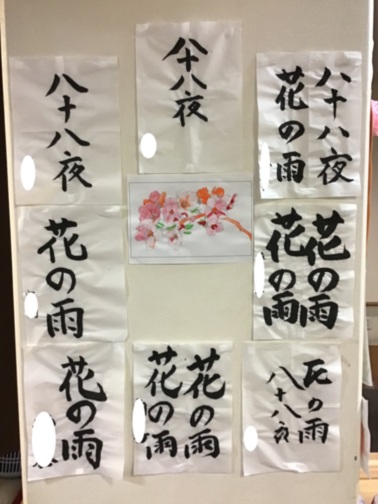 八十八夜
八十八夜
八十八夜
花の雨
花の雨
花の雨
花の雨
花の雨
花の雨
花の雨
の雨
八十八夜